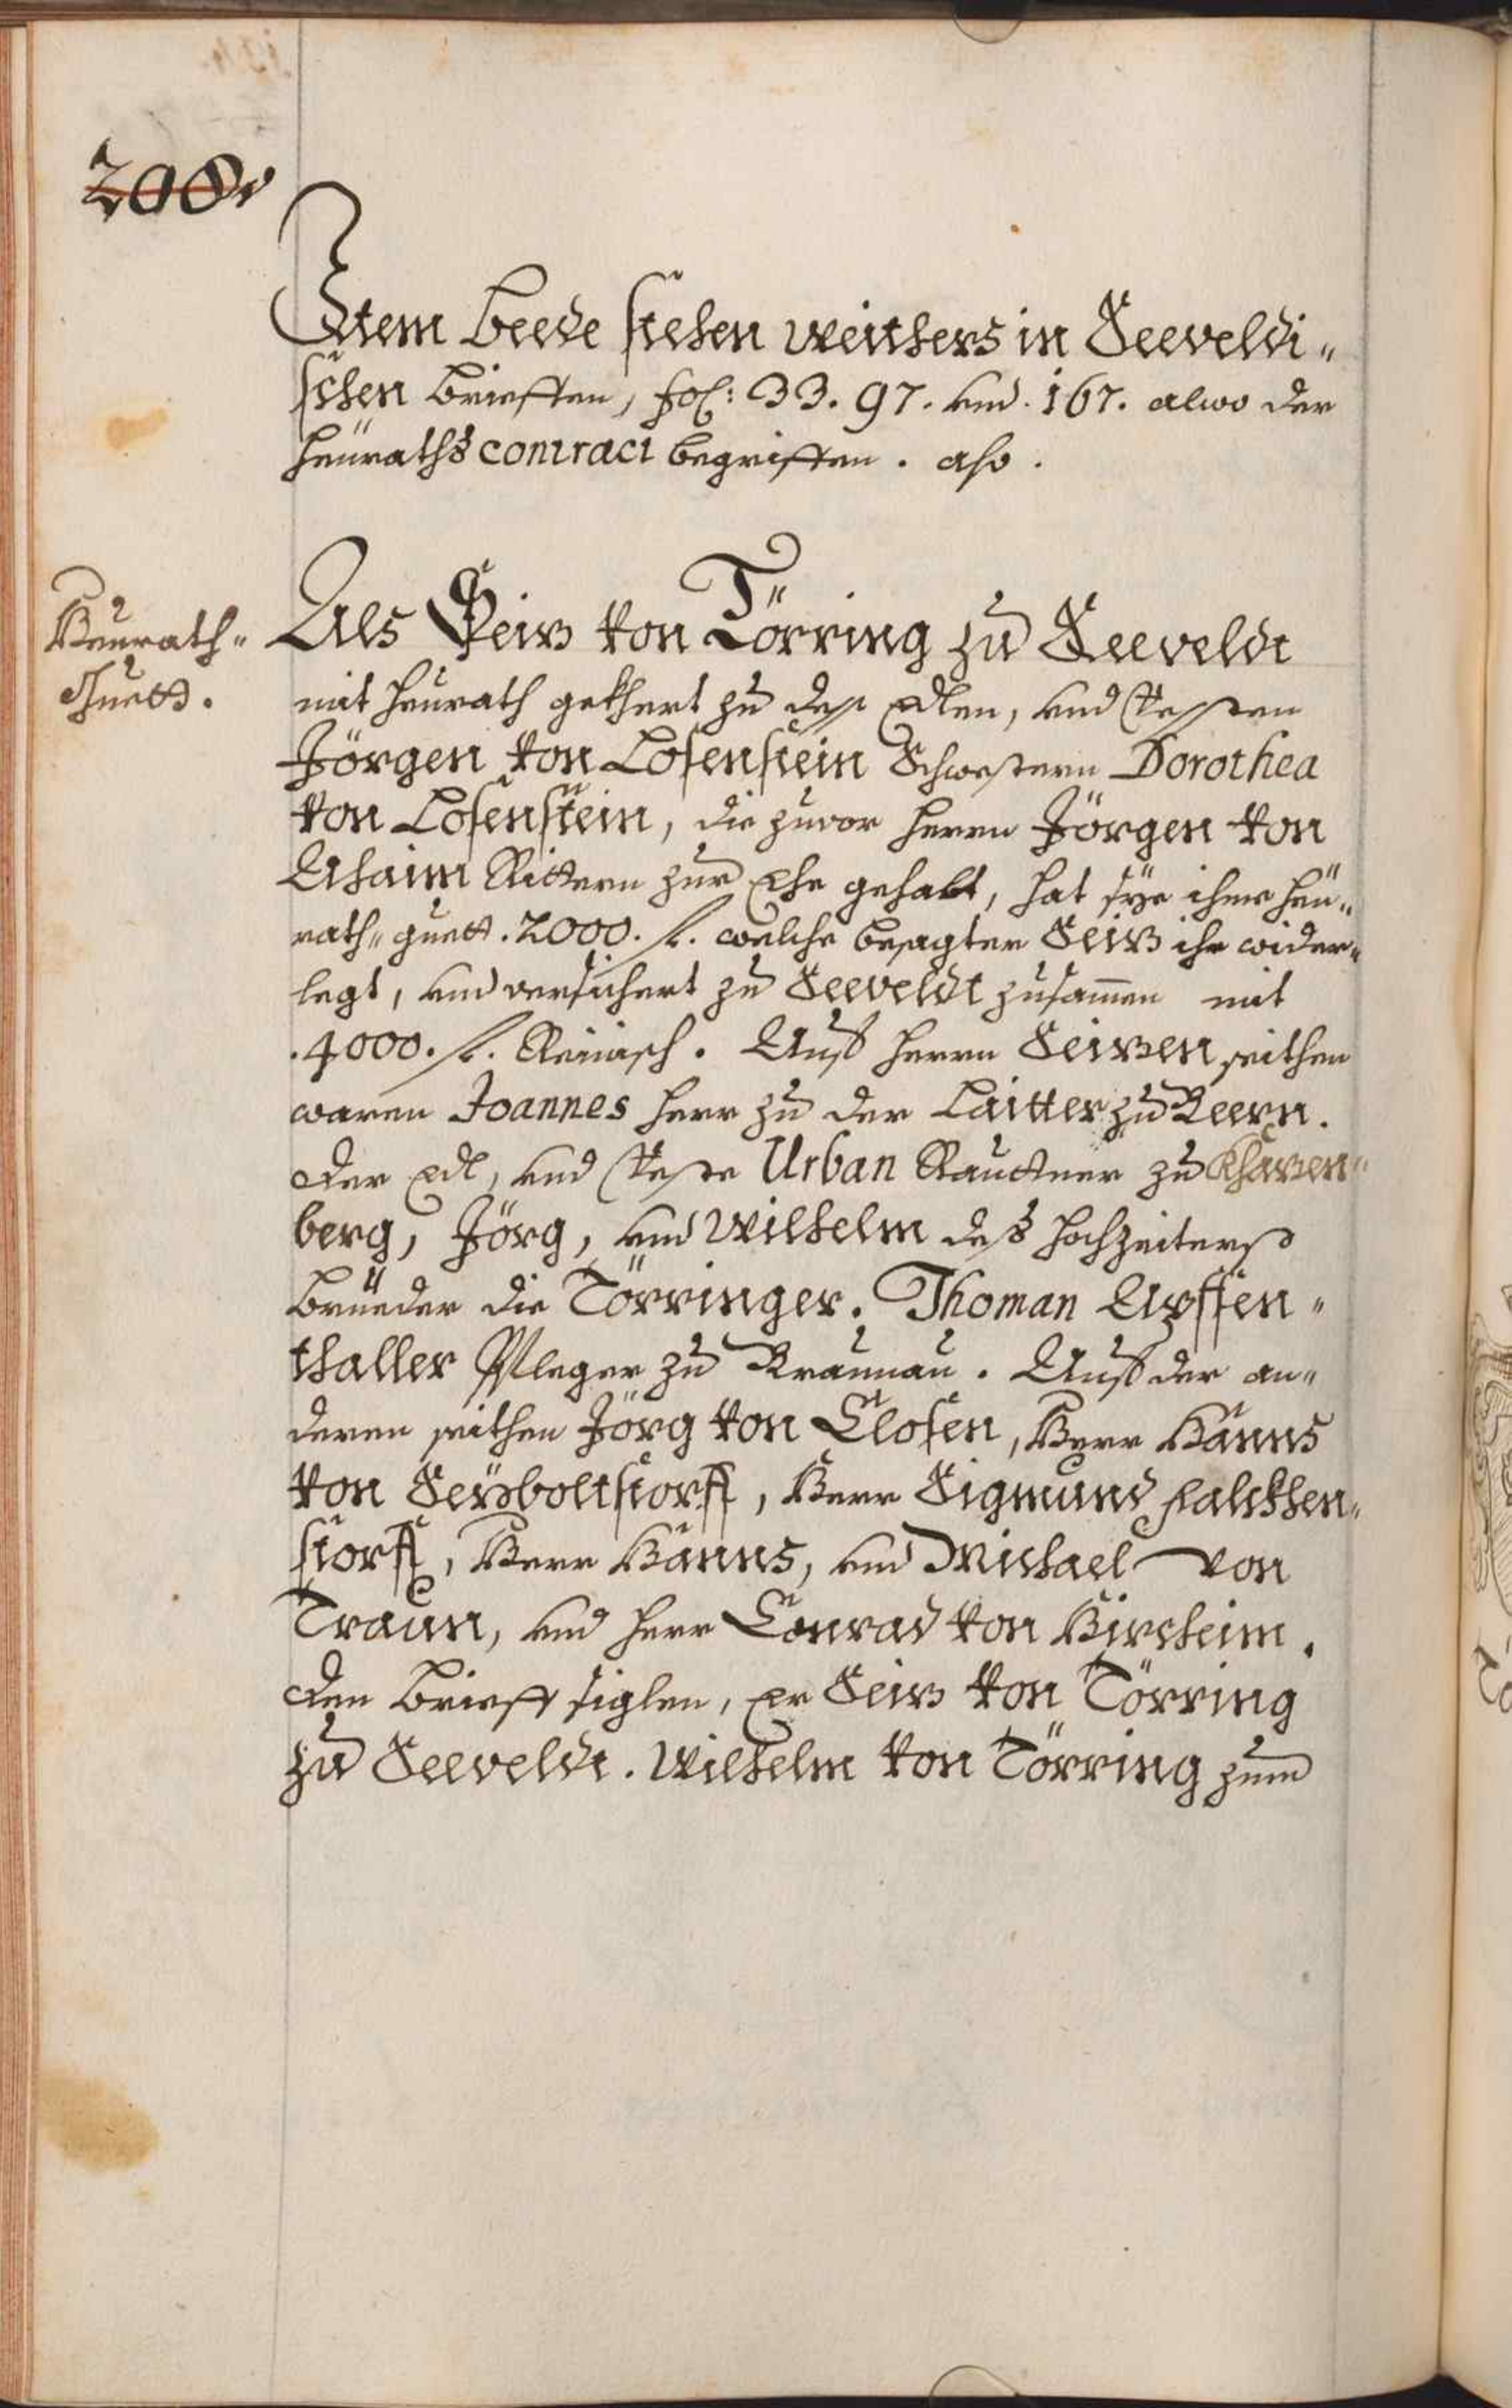 200v
Item beede stehen weithers in Seeveldi„
schen brieffen, fol: 33. 97. vnd. 167. alwo der
heüraths contract begriffen. also.
Heürath„
Guett.
Als Seiz von Törring zu Seeveldt
mit heürath gekhert zu dess Edlen, vnd Vessten
Jörgen von Losenstein Schwestern Dorothea
von Losenstein, die zuvor herrn Jörgen von
Ahaim Rittern zur Ehe gehabt, hat sÿe ihme heü„
rath„ guett. 2000. fl. welche besagter Seiz ihr wider„
legt, vnd versichert zu Seeveldt zusammen mit
.4000. fl. Reinisch. Auß herrn Seizen seithen
waren Joannes herr zu der Laitter zu Beern.
der Edl, vnd Veste Urban zu
berg, Jörg, vnd Wilhelm deß hochzeiterß
brüeder die Törringer. Thoman Apffen„
thaller Pfleger zu Braunau. Auß der an„
deren seithen Jörg von Closen, Herr Hanns
von Seyboltstorff, Herr Sigmund
storff, Herr Hanns, vnd Michael von
Traun, vnd herr Conrad von Hirsheim.
den brieff siglen, er Seiz von Törring
zu Seeveldt. Wilhelm von Törring zum